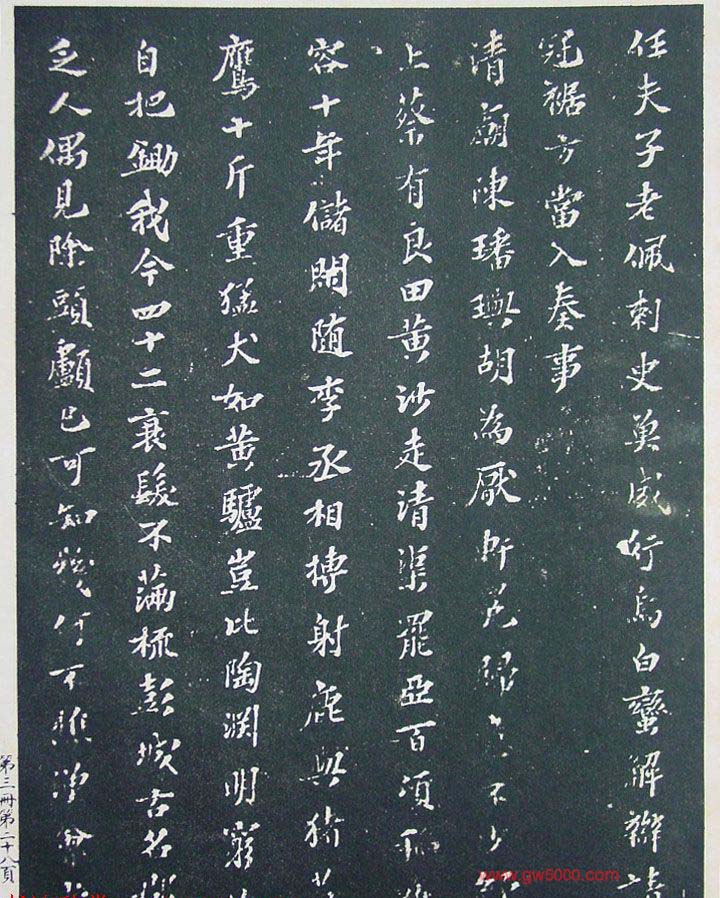 任夫子老佩刺史英威行烏白蠻解辮請
冠裾方當入奏事
清廟陳璠璵胡為厭軒冕歸意不少
上蔡有良田黃沙走清渠罷亞百頃稻
容十年儲閑随李丞相搏射鹿與猪
鷹十斤重猛犬如黃驢豈比陶渊明窮
自把鋤我今四十二衰髮不滿梳彭城古名
乏人偶見除頭顱已可知幾何不
第三冊第二十八頁
www.gw5000.com